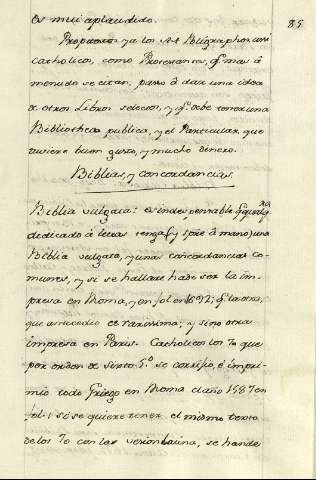 85
es mui aplaudido.
Propuestos ya los AA Poligraphos, assi
catholicos, como Protestantes, qe mas á
menudo se citan, passo á dar una idea
de otros Libros selectos, y qe debe tener una
Bibliotheca publica, y el Particular que
tuviere buen gusto, y mucho dinero.
Biblias, y concordancias.
Biblia vulgata: es indespensable qe qualqra
dedicado á letras tenga (y spre á mano) una
Biblia vulgata, y unas concordancias co-
munes, y si se hallare hade ser la im-
presa en Roma, y en fol. en 1592; qe la otra,
que antecedio es rarissima; y sino otra
impresa en Paris. Catholicos los 70 que
por orden de Sixto 5º se corrijio, é impri-
mio todo Griego en Roma el año 1587 en
fol.: si se quiere tener el mismo texto
de los 70 con las version latina, se han de